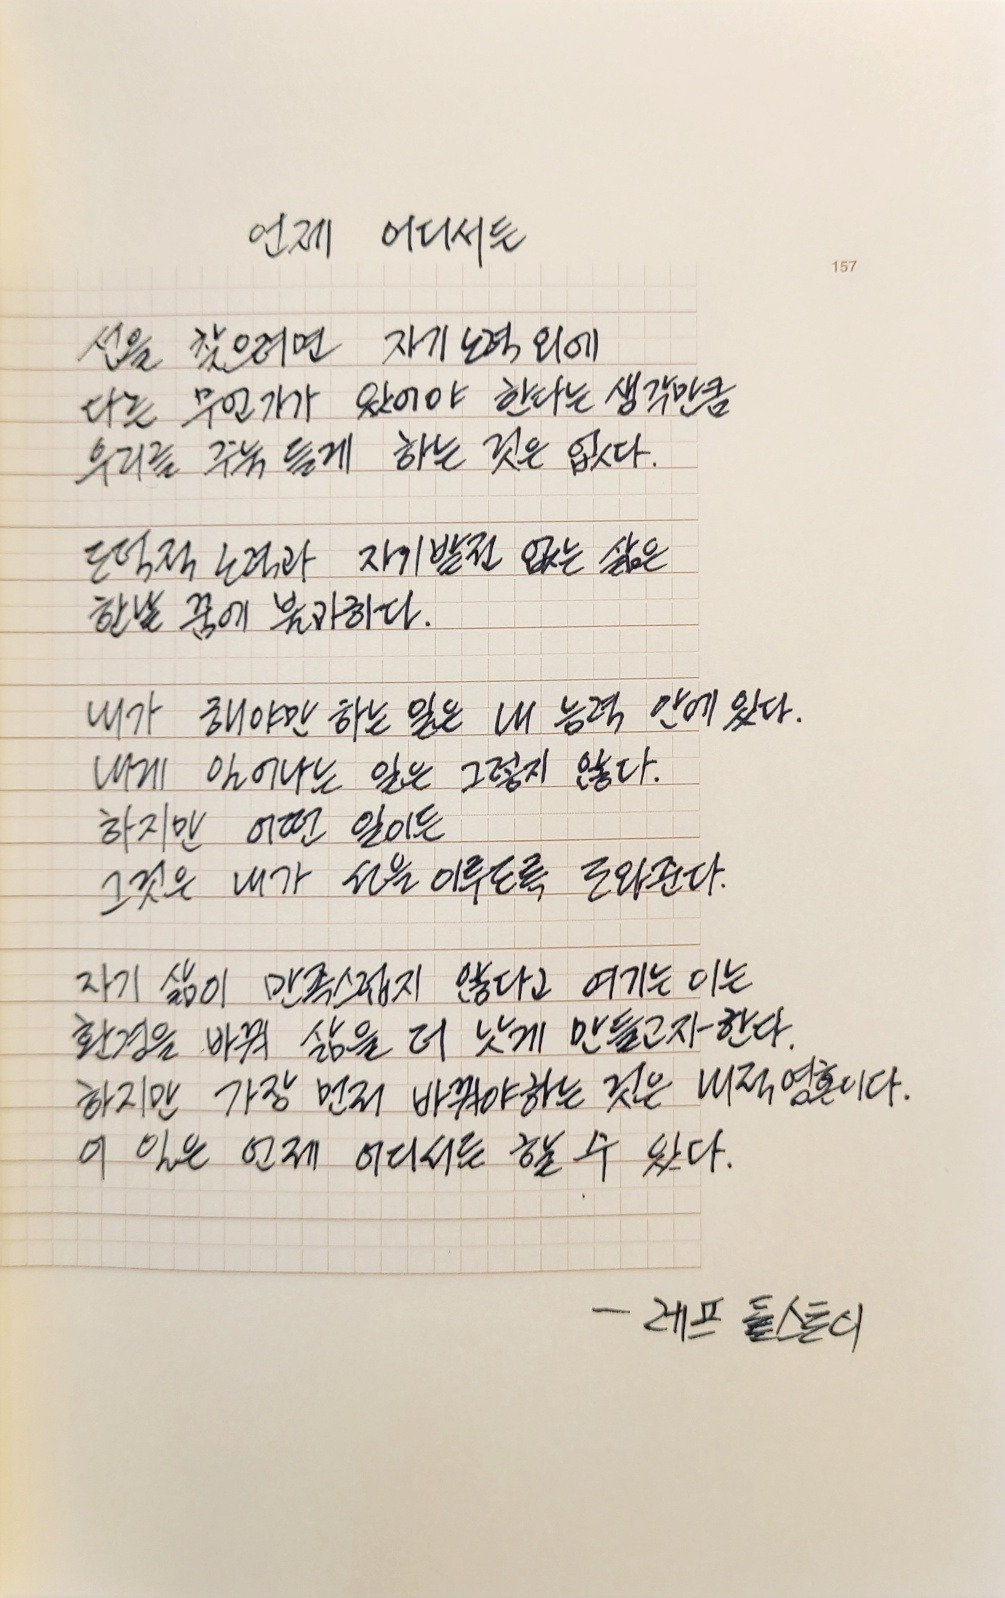 언제 어디서든
157
선을 찾으려면 자기 노력 외에
다른 무언가가 있어야 한다는 생각만큼
우리를 주눅 들게 하는 것은 없다.
도덕적 노력과 자기발전 없는 삶은
한낱 꿈에 불과하다.
내가 해야만 하는 일은 내 능력 안에 있다.
내게 일어나는 일은 그렇지 않다.
하지만 어떤 일이든
그것은 내가 선을 이루도록 도와준다.
자기 삶이 만족스럽지 않다고 여기는 이는
환경을 바꿔 삶을 더 낫게 만들고자 한다.
하지만 가장 먼저 바꿔야하는 것은 내적 영혼이다.
이 일은 언제 어디서든 할 수 있다.
— 레프 톨스토이